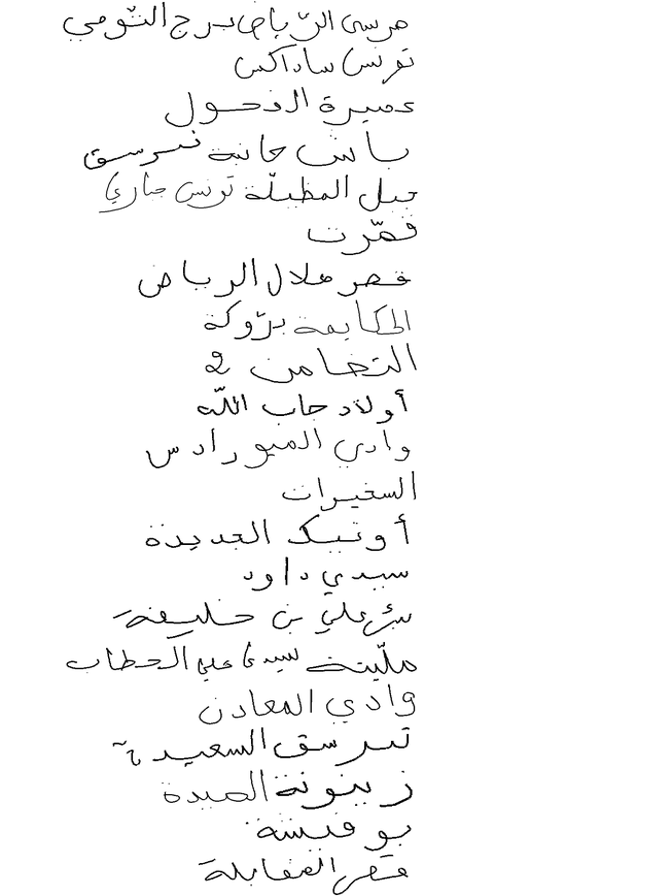 مرسى الرّياض برج التّومي
تونس ساداكس
عميرة الفحول
باش حانبة تبرسق
جبل المظيلّة تونس
قمّرت
قصر هلال الرياض
الحكايمة برّوكة
التضامن 2
أولاد جاب اللّه
وادي الميو رادس
السغيرات
أوتيك الجديدة
سيدي داود
بئر علي بن خليفة
ملّيتة سيدي علي الحطاب
وادي المعادن
تبرسق السعيدة
زيتونة
بوفيشة
قصر القفابلة